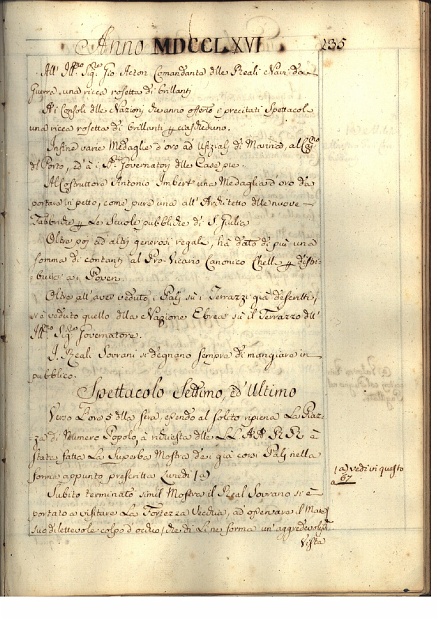 Anno MDCCLXVI 235
All' Ill.mo Sig.re Gio Acton Comandante delle Reali Navi da
Guerra, una ricca rosetta di brillanti
A i Consoli delle Nazioni, che anno offerto i precitati Spettacoli
una ricca rosetta di brillanti p
Infine varie Medaglie d'oro ad Ufizial di Marina, al
del Porto, ed a i Governatori delle Case pie.
Al Costruttore Antonio Imbert una Medaglia d'oro da
portare in petto, come pure una all' Architetto delle nuove
Fabbriche p Le Scuole pubbliche di S. Giulia
Oltre poi ad altri generosi regali, ha dato di più una
somma di contanti al Pro-Vicario Canonico p distri
buire a i Poveri.
Oltre all' aver veduto i Palj sù i Terrazzi già descritti
si è veduto quello della Nazione Ebrea sù il Terrazzo dell'
Ill.mo Sig.re Governatore.
I Reali Sovrani si degnano sempre di mangiare in
pubblico.
Spettacolo Settimo, ed Ultimo
Verso L'ore 5 della sera, essendo al solito ripiena La Piaz
za di Numeroso Popolo, a richiesta delle LL. AA. RR. è
stata fatta La Superba Mostra de i già corsi Palj nella
forma appunto prescritta (vedi) (a)
(a) vedi in questo
a 67
Subito terminato simil Mostra il Real Sovrano si è
portato a visitare La Fortezza Vecchia, ad osservare il
suo dilettevole colpo d'occhio, che di Lì ne forma un' aggradevole
Vista